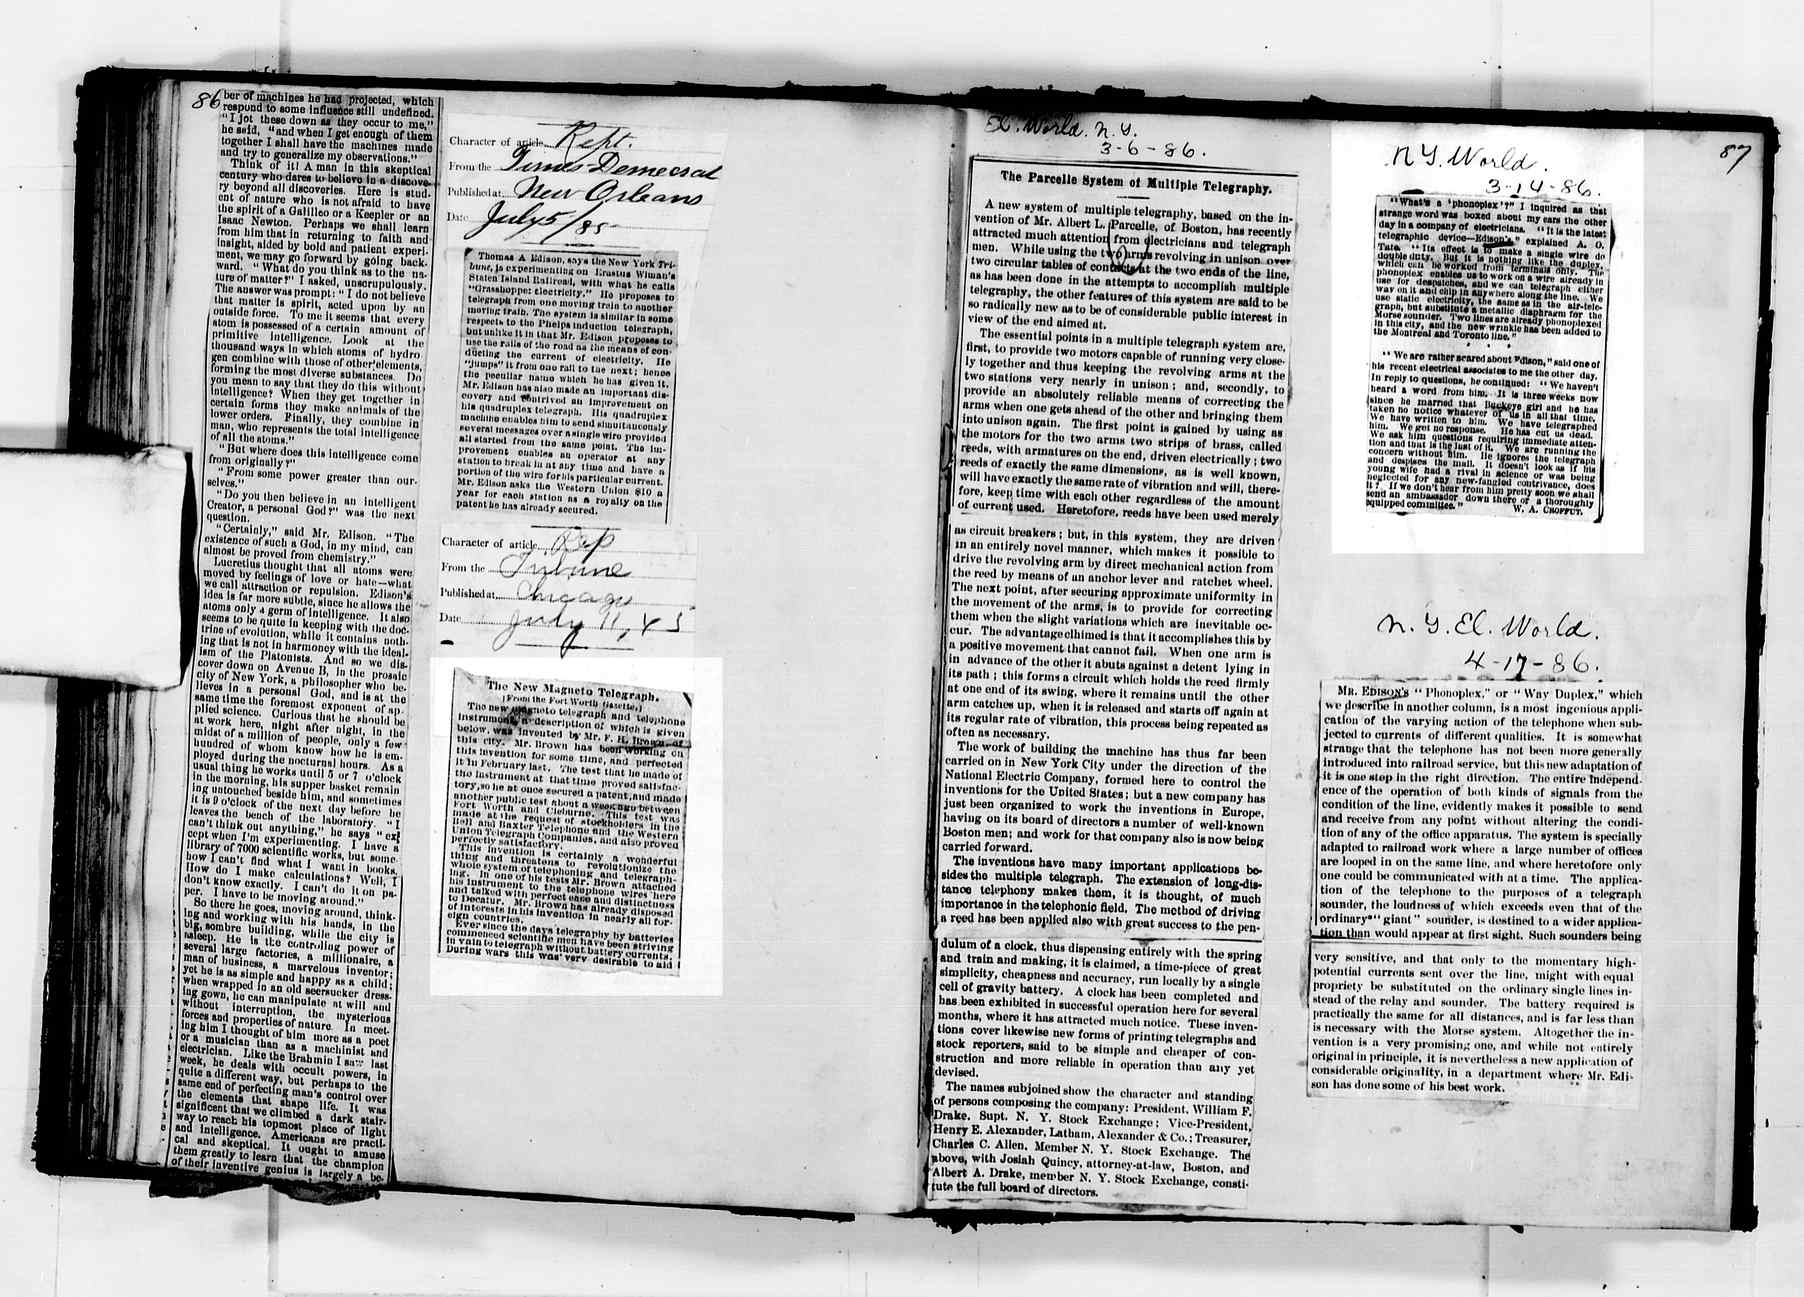 86
ber of machines he had projected, which
respond to some influence still undefined.
"I jot these down as they occur to me,"
he said, "and when I get enough of them
together I shall have the machines made
and try to generalize my observations."
Think of it! A man in this skeptical
century who dares to believe in a discove-
ry beyond all discoveries. Here is stud-
ent of nature who is not afraid to have
the spirit of a Galileo or a Keepler or an
Isaac Newton. Perhaps we shall learn
from him that in returning to faith and
insight, aided by bold and patient experi-
ment, we may go forward by going back-
ward. "What do you think as to the na-
turn of matter?" I asked, unscrupulously.
The answer was prompt: "I do not believe
that matter is spirit, acted upon by an
outside force. To me it seems that every
atom is possessed of a certain amount of
primitive intelligence. Look at the
thousand ways in which atoms of hydro-
gen combine with those of other elements,
forming the most diverse substances. Do
you mean to say that they do this without
intelligence? When they get together in
certain forms they make animals of the
lower orders. Finally, they combine in
man, who represents the total intelligence
of all the atoms."
"But where does this intelligence come
from originally?"
"From some power greater than our-
selves."
"Do you then believe in an intelligent
Creator, a personal God?" was the next
question.
"Certainly," said Mr. Edison. "The
existence of such a God, in my mind, can
almost be proved from chemistry."
Lucretius thought that all atoms were
moved by feelings of love or hate—what
we call attraction or repulsion. Edison's
idea is far more subtle, since he allows the
atoms only a germ of intelligence. It also
seems to be quite in keeping with the doc-
trine of evolution, while it contains noth-
ing that is not in harmony with the ideal-
ism of the Platonists. And so we dis-
cover down on Avenue B, in the prosaic
city of New York, a philosopher who be-
lieves in a personal God, and is at the
same time the foremost exponent of ap-
plied science. Curious that he should be
at work here, night after night, in the
midst of a million of people, only a few
hundred of whom know how he is em-
ployed during the nocturnal hours. As a
usual thing he works until 5 or 7 o'clock
in the morning, his supper basket remain
ing untouched beside him, and sometimes
it is 9 o'clock of the next day before he
leaves the bench of the laboratory. "I
can't think out anything," he says "ex-
cept when I'm experimenting. I have a
library of 7000 scientific works, but some-
how I can't find what I want in books.
How do I make calculations? Well, I
don't know exactly. I can't do it on pa-
per. I have to be moving around."
So there he goes, moving around, think-
ing and working with his hands, in the
big, sombre building, while the city is
asleep. He is the controling power of
several large factories, a millionaire, a
man of business, a marvelous inventor;
yet he is as simple and happy as a child;
when wrapped in an old seersucker dress-
ing gown, he can manipulate at will and
without interruption, the mysterious
forces and properties of nature. In meet-
ing him I thought of him more as a poet
or a musician than as a machinist and
electrician. Like the Brahmin I saw last
week, he deals with occult powers, in
quite a different way, but perhaps to the
same end of perfecting man's control over
the elements that shape life. It was
significant that we climbed a dark stair-
way to reach his topmost place of light
and intelligence. Americans are practi-
cal and skeptical. It ought to amuse
them greatly to learn that the champion
of their inventive genius is largely a be-
Character of article Rept.
From the Times-Democrat
Published at New Orleans
Date July 5/85
Thomas A Edison, says the New York Tri-
bune, is experimenting on Erastus Wiman's
Staten Island Railroad, with what he calls
"Grasshopper electricity." He proposes to
telegraph from one moving train to another
moving train. The system is similar in some
respects to the Phelps induction telegraph,
but unlike it in that Mr. Edison proposes to
use the rails of the road as the means of con-
ducting the current of electricity. He
"jumps" it from one rail to the next; hence
the peculiar name which he has given it.
Mr. Edison has also made an important dis-
covery and contrived an improvement on
his quadruplex telegraph. His quadruplex
machine enables him to send simultaneously
several messages over a single wire provided
all started from the same point. The im-
provement enables an operator at any
station to break in at any time and have a
portion of the wire for his particular current.
Mr. Edison asks the Western Union $10 a
year for each station as a royalty on the
patent he has already secured.
Character of article Rep
From the Tribune
Published at Chicago
Date July 11, 85
The New Magneto Telegraph.
[From the Fort Worth Gazette.]
The new magneto telegraph and telephone
instrument, a description of which is given
below, was invented by Mr. F. H. Brown, of
this city. Mr. Brown has been working on
this invention for some time, and perfected
it in February last. The test that he made of
the instrument at that time proved satisfac-
tory, so he at once secured a patent, and made
another public test about a week ago between
Fort Worth and Cleburne. This test was
made at the request of stockholders in the
Bell and Baxter Telephone and the Western
Union Telegraph Companies, and also proved
perfectly satisfactory.
This invention is certainly a wonderful
thing and threatens to revolutionize the
whole system of telephoning and telegraph-
ing. In one of his tests Mr. Brown attached
his instrument to the telephone wires here
and talked with perfect ease and distinctness
to Decatur. Mr. Brown has already disposed
of interests in his invention in nearly all for-
eign countries.
Ever since the days telegraphy by batteries
commenced scientific men have been striving
in vain to telegraph without battery currents.
During wars this was very desirable to aid
El. World. N. Y.
3-6-86.
The Parcelle System of Multiple Telegraphy.
A new system of multiple telegraphy, based on the in-
vention of Mr. Albert L. Parcelle, of Boston, has recently
attracted much attention from electricians and telegraph
men. While using the two arms revolving in unison over
two circular tables of contacts at the two ends of the line,
as has been done in the attempts to accomplish multiple
telegraphy, the other features of this system are said to be
so radically new as to be of considerable public interest in
view of the end aimed at.
The essential points in a multiple telegraph system are,
first, to provide two motors capable of running very close-
ly together and thus keeping the revolving arms at the
two stations very nearly in unison; and, secondly, to
provide an absolutely reliable means of correcting the
arms when one gets ahead of the other and bringing them
into unison again. The first point is gained by using as
the motors for the two arms two strips of brass, called
reeds, with armatures on the end, driven electrically; two
reeds of exactly the same dimensions, as is well known,
will have exactly the same rate of vibration and will, there-
fore, keep time with each other regardless of the amount
of current used. Heretofore, reeds have been used merely
as circuit breakers; but, in this system, they are driven
in an entirely novel manner, which makes it possible to
drive the revolving arm by direct mechanical action from
the reed by means of an anchor lever and ratchet wheel.
The next point, after securing approximate uniformity in
the movement of the arms, is to provide for correcting
them when the slight variations which are inevitable oc-
cur. The advantage clhimed is that it accomplishes this by
a positive movement that cannot fail. When one arm is
in advance of the other it abuts against a detent lying in
its path; this forms a circuit which holds the reed firmly
at one end of its swing, where it remains until the other
arm catches up, when it is released and starts off again at
its regular rate of vibration, this process being repeated as
often as necessary.
The work of building the machine has thus far been
carried on in New York City under the direction of the
National Electric Company, formed here to control the
inventions for the United States; but a new company has
just been organized to work the inventions in Europe,
having on its board of directors a number of well-known
Boston men; and work for that company also is now being
carried forward.
The inventions have many important applications be-
sides the multiple telegraph. The extension of long-dis-
tance telephony makes them, it is thought, of much
importance in the telephonic field. The method of driving
a reed has been applied also with great success to the pen-
dulum of a clock, thus dispensing entirely with the spring
and train and making, it is claimed, a time-piece of great
simplicity, cheapness and accuracy, run locally by a single
cell of gravity battery. A clock has been completed and
has been exhibited in successful operation here for several
months, where it has attracted much notice. These inven-
tions cover likewise new forms of printing telegraphs and
stock reporters, said to be simple and cheaper of con-
struction and more reliable in operation than any yet
devised.
The names subjoined show the character and standing
of persons composing the company: President, William F.
Drake, Supt. N. Y. Stock Exchange; Vice-President,
Henry E. Alexander, Latham, Alexander & Co.; Treasurer,
Charles C. Allen, Member N. Y. Stock Exchange. The
above, with Josiah Quincy, attorney-at-law, Boston, and
Albert A. Drake, member N. Y. Stock Exchange, consti-
tute the full board of directors.
87
N Y. World.
3-14-86.
"What's a 'phonoplex'?" I inquired as that
strange word was boxed about my ears the other
day in a company of electricians. "It is the latest
telegraphic device—Edison's," explained A. O.
Tate. "Its effect is to make a single wire do
double duty. But it is nothing like the duplex,
which can be worked from terminals only. The
phonoplex enables us to work on a wire already in
use for despatches, and we can telegraph either
way on it and chip in anywhere along the line. We
use static electricity, the same as in the air-tele-
graph, but substitute a metallic diaphragm for the
Morse sounder. Two lines are already phonoplexed
in this city, and the new wrinkle has been added to
the Montreal and Toronto line."
"We are rather scared about Edison," said one of
his recent electrical associates to me the other day.
In reply to questions, he continued: "We haven't
heard a word from him. It is three weeks now
since he married that Buckeye girl and he has
taken no notice whatever of us in all that time.
We have written to him. We have telegraphed
him. We get no response. He has cut us dead.
We ask him questions requiring immediate atten-
tion and that is the last of it. We are running the
concern without him. He ignores the telegraph
and despises the mail. It doesn't look as if his
young wife had a rival in science or was being
neglected for any new-fangled contrivance, does
it? If we don't hear from him pretty soon we shall
send an ambassador down there or a thoroughly
equipped committee." W. A. CROFFUT.
N. Y. El. World.
4-17-86.
MR. EDISON'S "Phonoplex," or "Way Duplex," which
we describe in another column, is a most ingenious appli-
cation of the varying action of the telephone when sub-
jected to currents of different qualities. It is somewhat
strange that the telephone has not been more generally
introduced into railroad service, but this new adaptation of
it is one step in the right direction. The entire independ-
ence of the operation of both kinds of signals from the
condition of the line, evidently makes it possible to send
and receive from any point without altering the condi-
tion of any of the office apparatus. The system is specially
adapted to railroad work where a large number of offices
are looped in on the same line, and where heretofore only
one could be communicated with at a time. The applica-
tion of the telephone to the purposes of a telegraph
sounder, the loudness of which exceeds even that of the
ordinary "giant" sounder, is destined to a wider applica-
tion than would appear at first sight. Such sounders being
very sensitive, and that only to the momentary high-
potential currents sent over the line, might with equal
propriety be substituted on the ordinary single lines in-
stead of the relay and sounder. The battery required is
practically the same for all distances, and is far less than
is necessary with the Morse system. Altogether the in-
vention is a very promising one, and while not entirely
original in principle, it is nevertheless a new application of
considerable originality, in a department where Mr. Edi-
son has done some of his best work.